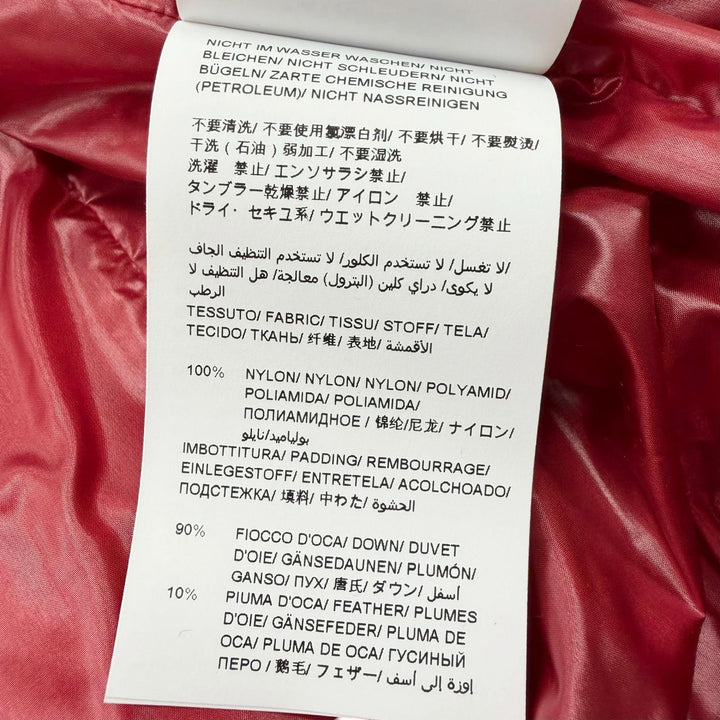 NICHT IM WASSER WASCHEN/ NICHT
BLEICHEN/ NICHT SCHLEUDERN/ NICHT
BÜGELN/ ZARTE CHEMISCHE REINIGUNG
(PETROLEUM)/ NICHT NASSREINIGEN
不要清洗/ 不要使用氯漂白剂/ 不要烘干/ 不要熨烫/
干洗（石油）弱加工/ 不要湿洗
洗濯　禁止/ エンソサラシ禁止/
タンブラー乾燥禁止/ アイロン　禁止/
ドライ・セキユ系/ ウエットクリーニング禁止
/لا تغسل/ لا تستخدم الكلور/ لا تستخدم التنظيف الجاف
لا يكوى/ دراي كلين (البترول) معالجة/ هل التنظيف لا
الرطب
TESSUTO/ FABRIC/ TISSU/ STOFF/ TELA/
TECIDO/ ТКАНЬ/ 纤维/ 表地/ الأقمشة
100% NYLON/ NYLON/ NYLON/ POLYAMID/
POLIAMIDA/ POLIAMIDA/
ПОЛИАМИДНОЕ / 锦纶/尼龙/ ナイロン/
بولياميد/نايلو
IMBOTTITURA/ PADDING/ REMBOURRAGE/
EINLEGESTOFF/ ENTRETELA/ ACOLCHOADO/
ПОДСТЕЖКА/ 填料/ 中わた/ الحشوة
90% FIOCCO D'OCA/ DOWN/ DUVET
D'OIE/ GÄNSEDAUNEN/ PLUMÓN/
GANSO/ ПУХ/ 唐氏/ ダウン/ أسفل
10% PIUMA D'OCA/ FEATHER/ PLUMES
D'OIE/ GÄNSEFEDER/ PLUMA DE
OCA/ PLUMA DE OCA/ ГУСИНЫЙ
ПЕРО / 鹅毛/ フェザー/ إوزة إلى أسفل